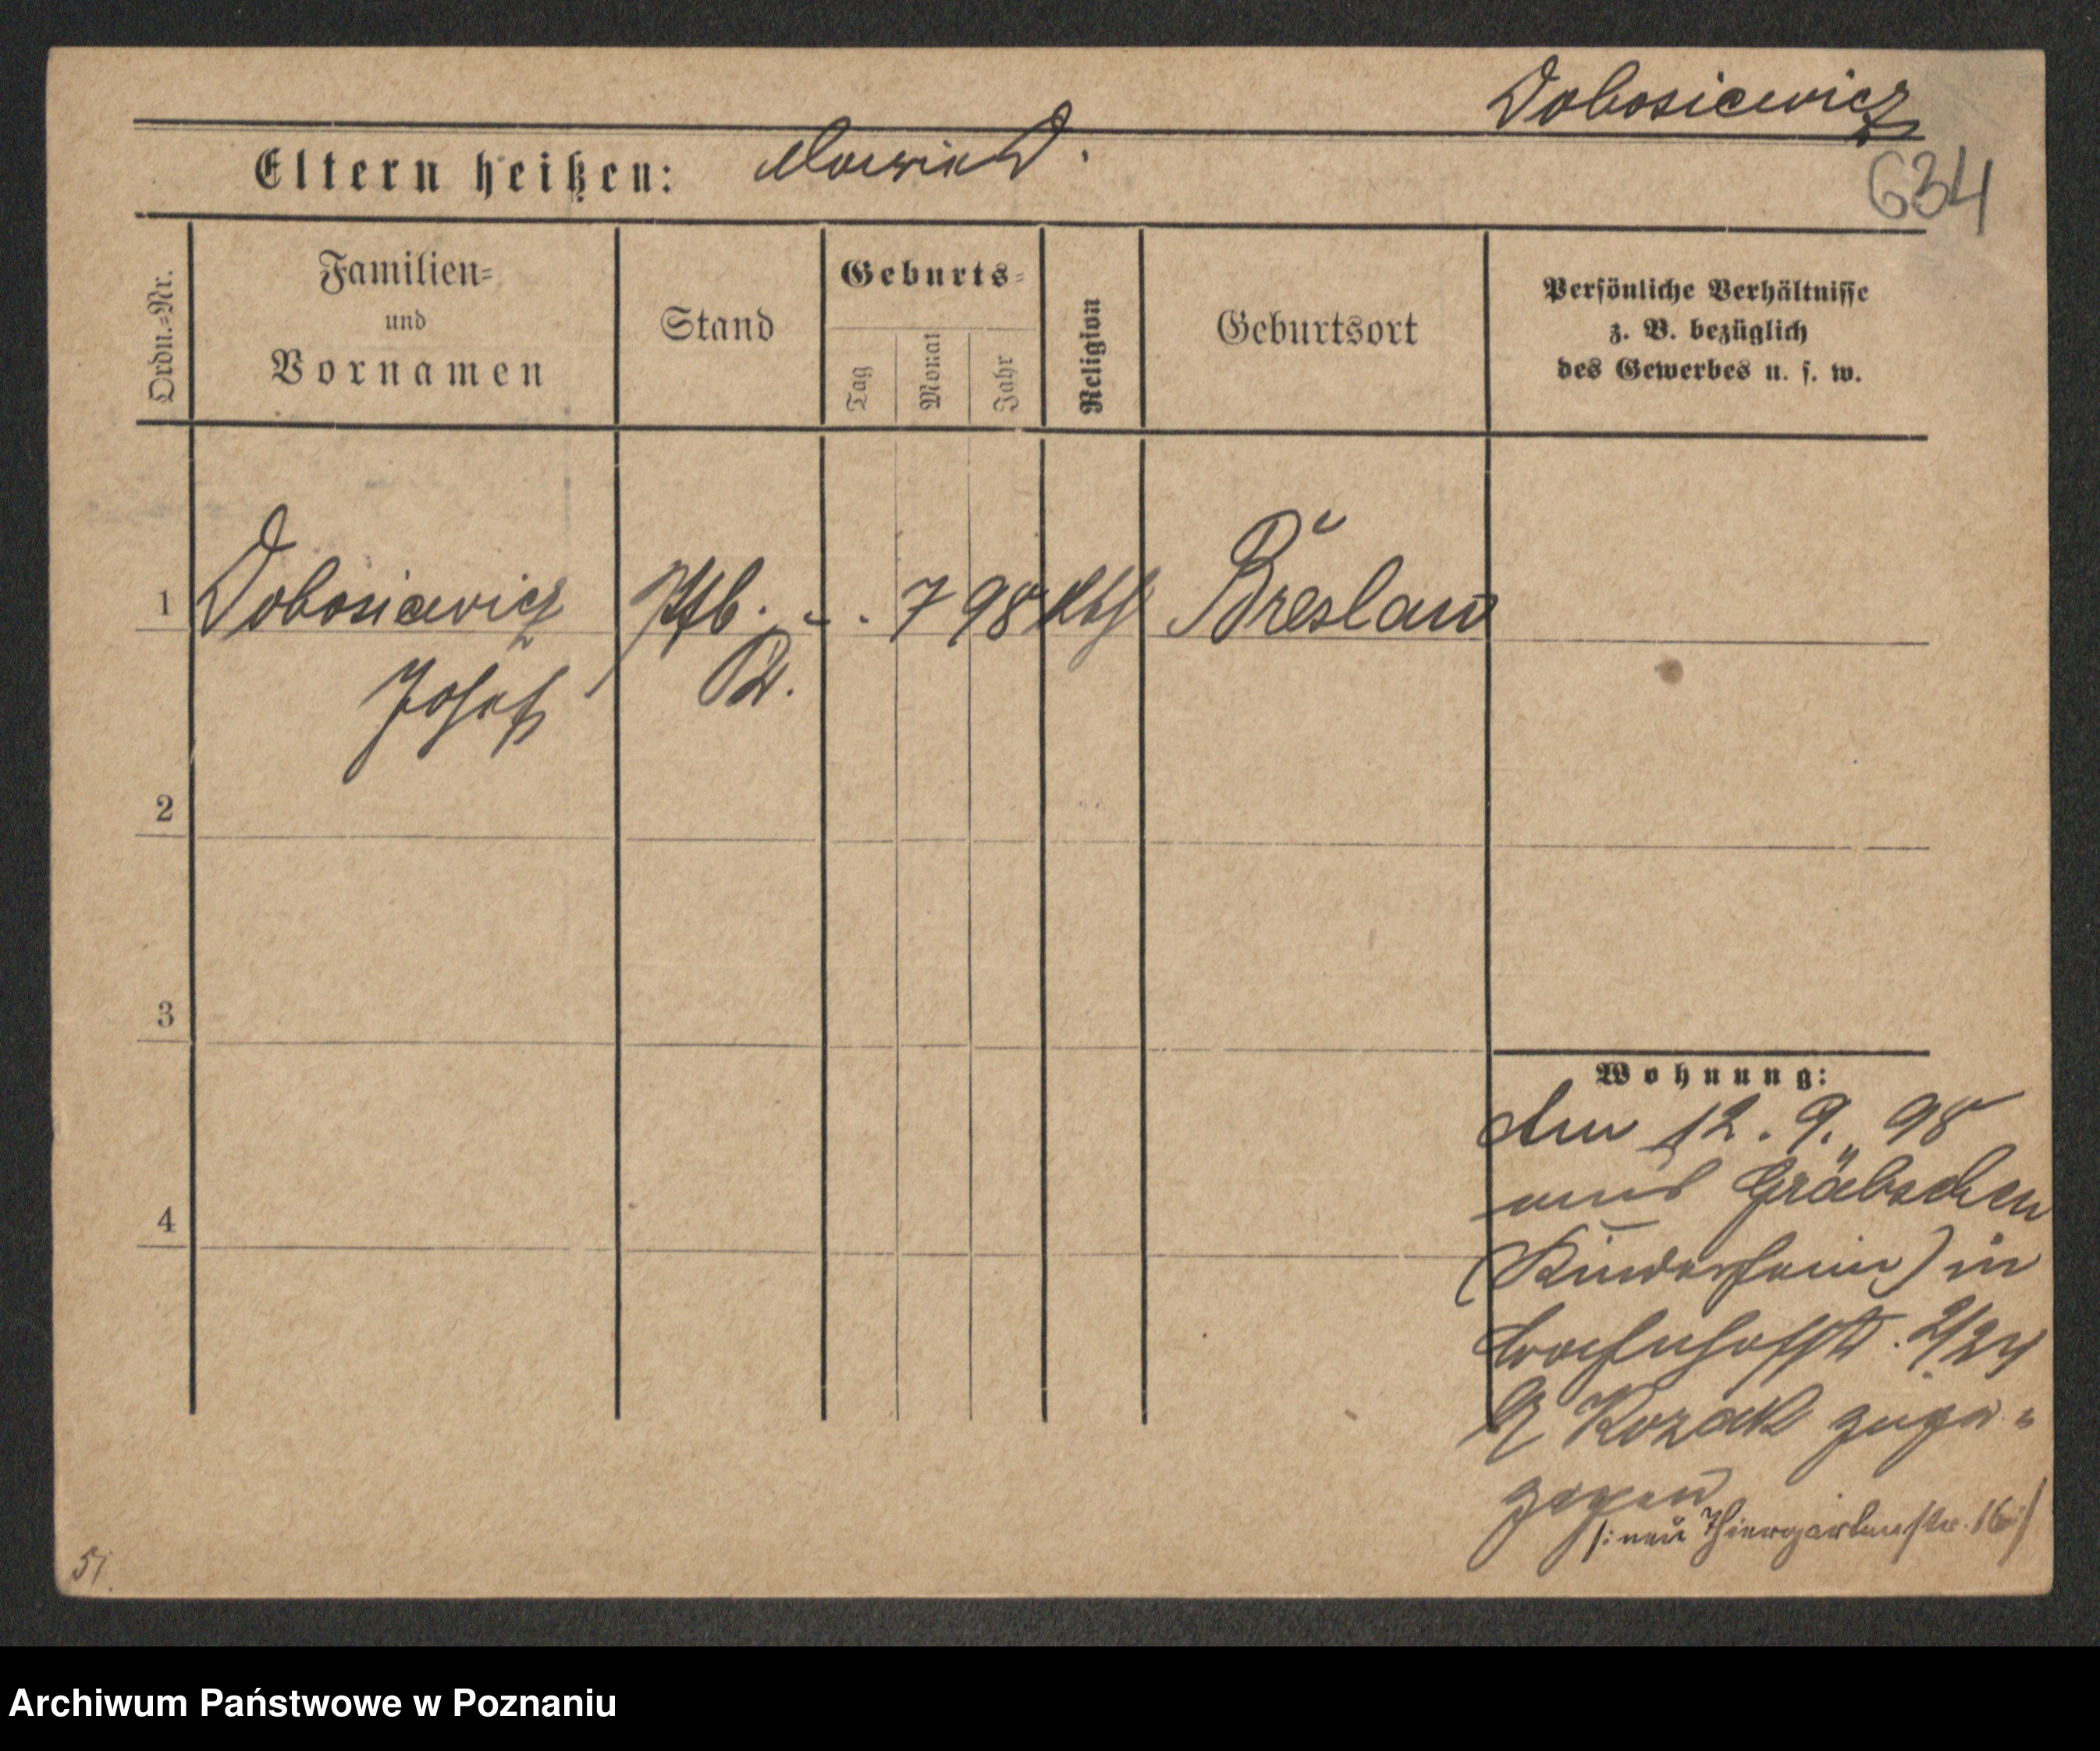 Dobosiewicz
Eltern heißen: Maria D.
634
Ordn.=Nr.
Familien=
und
Vornamen
Stand
Geburts=
Tag
Monat
Jahr
Religion
Geburtsort
Persönliche Verhältnisse
z. B. bezüglich
des Gewerbes u. s. w.
1 Dobosiewicz 7 98 kth Breslau
Josef
2
3
4
Wohnung:
Am 12. 9. 98
aus Gräbschen
(Kinderheim) in
2/24
Kozak zuge=
zogen
/: neu Thiergartenstr. 16 :/
51.
Archiwum Państwowe w Poznaniu